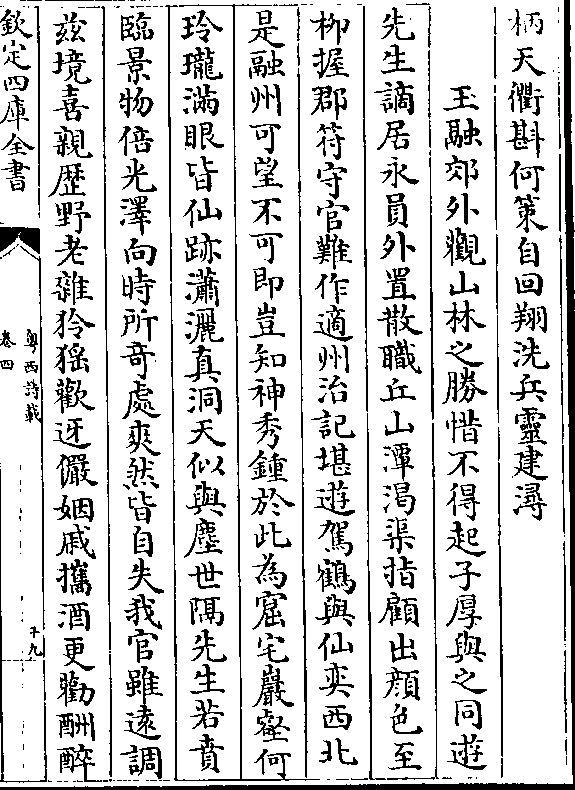 柄天衢斟何策自回翔洗兵靈建潯
王融郊外觀山林之勝惜不得起子厚與之同遊
先生謫居永員外置散職丘山潭渴渠指顧出顔色至
柳握郡符守官難作適州治記堪遊駕鶴與仙奕西北
是融州可望不可即豈知神秀鍾於此為窟宅巖壑何
玲瓏滿眼皆仙跡瀟灑真洞天似與塵世隔先生若賁
臨景物倍光澤向時所奇處爽然皆自失我官雖逺調
兹境喜親歴野老雜狑猺歡迓儼姻戚攜酒更勸酬醉
欽定四庫全書
粤西詩載
卷四
十九